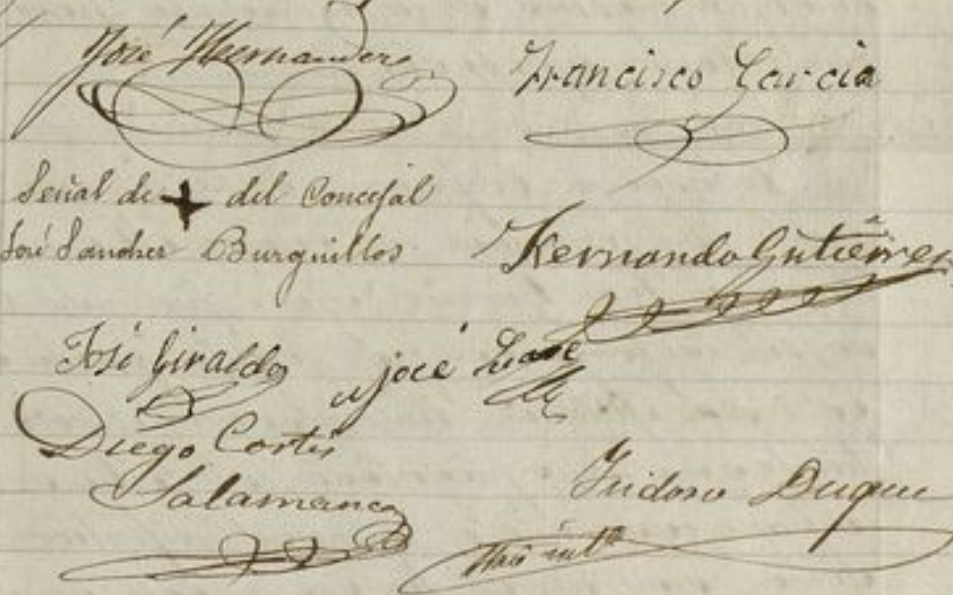 José Hernandez
Francisco Garcia
Señal de + del Concejal
José Sanchez Burguillos
Fernando Gutiérrez
José Giraldo
José
Diego Cortés
Salamanca
Isidoro Duque